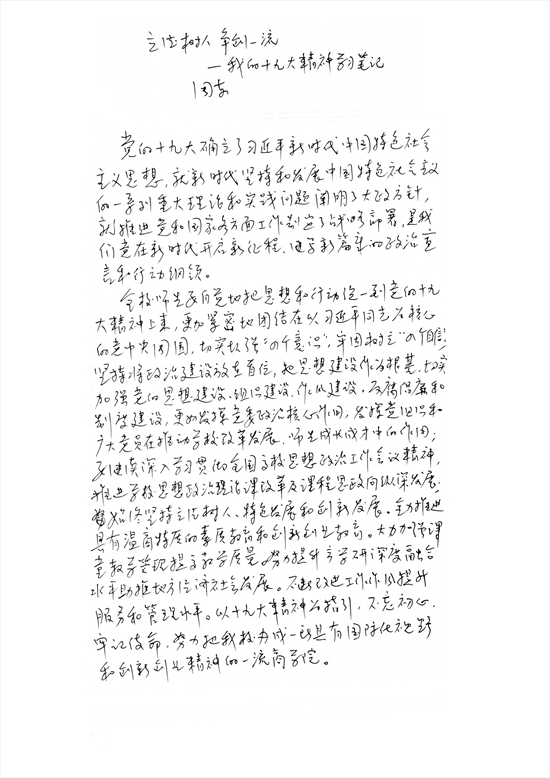 立德树人 争创一流
—我的十九大精神学习笔记
周
党的十九大确立了习近平新时代中国特色社会
主义思想，就新时代坚持和发展中国特色社会主义
的一系列重大理论和实践问题阐明了大政方针，
就推进党和国家各方面工作制定了战略部署，是我
们党在新时代开启新征程、谱写新篇章的政治宣
言和行动纲领。
全校师生要自觉地把思想和行动统一到党的十九
大精神上来，更加紧密地团结在以习近平同志为核心
的党中央周围，切实增强“四个意识”，牢固树立“四个自信”，
坚持将政治建设放在首位，把思想建设作为根基，切实
加强党的思想建设、组织建设、作风建设、反腐倡廉和
制度建设，更好发挥党委政治核心作用，发挥党组织和
广大党员在推动学校改革发展、师生成长成才中的作用；
要继续深入学习贯彻全国高校思想政治工作会议精神，
推进学校思想政治理论课改革及课程思政向纵深发展，
要始终坚持立德树人、特色发展和创新发展。全力推进
具有温商特质的素质教育和创新创业教育。大力加强课
堂教学管理提高教学质量，努力提升产学研深度融合
水平助推地方经济社会发展。不断改进工作作风提升
服务和管理水平。以十九大精神为指引，不忘初心，
牢记使命，努力把我校办成一所具有国际化视野
和创新创业精神的一流商学院。